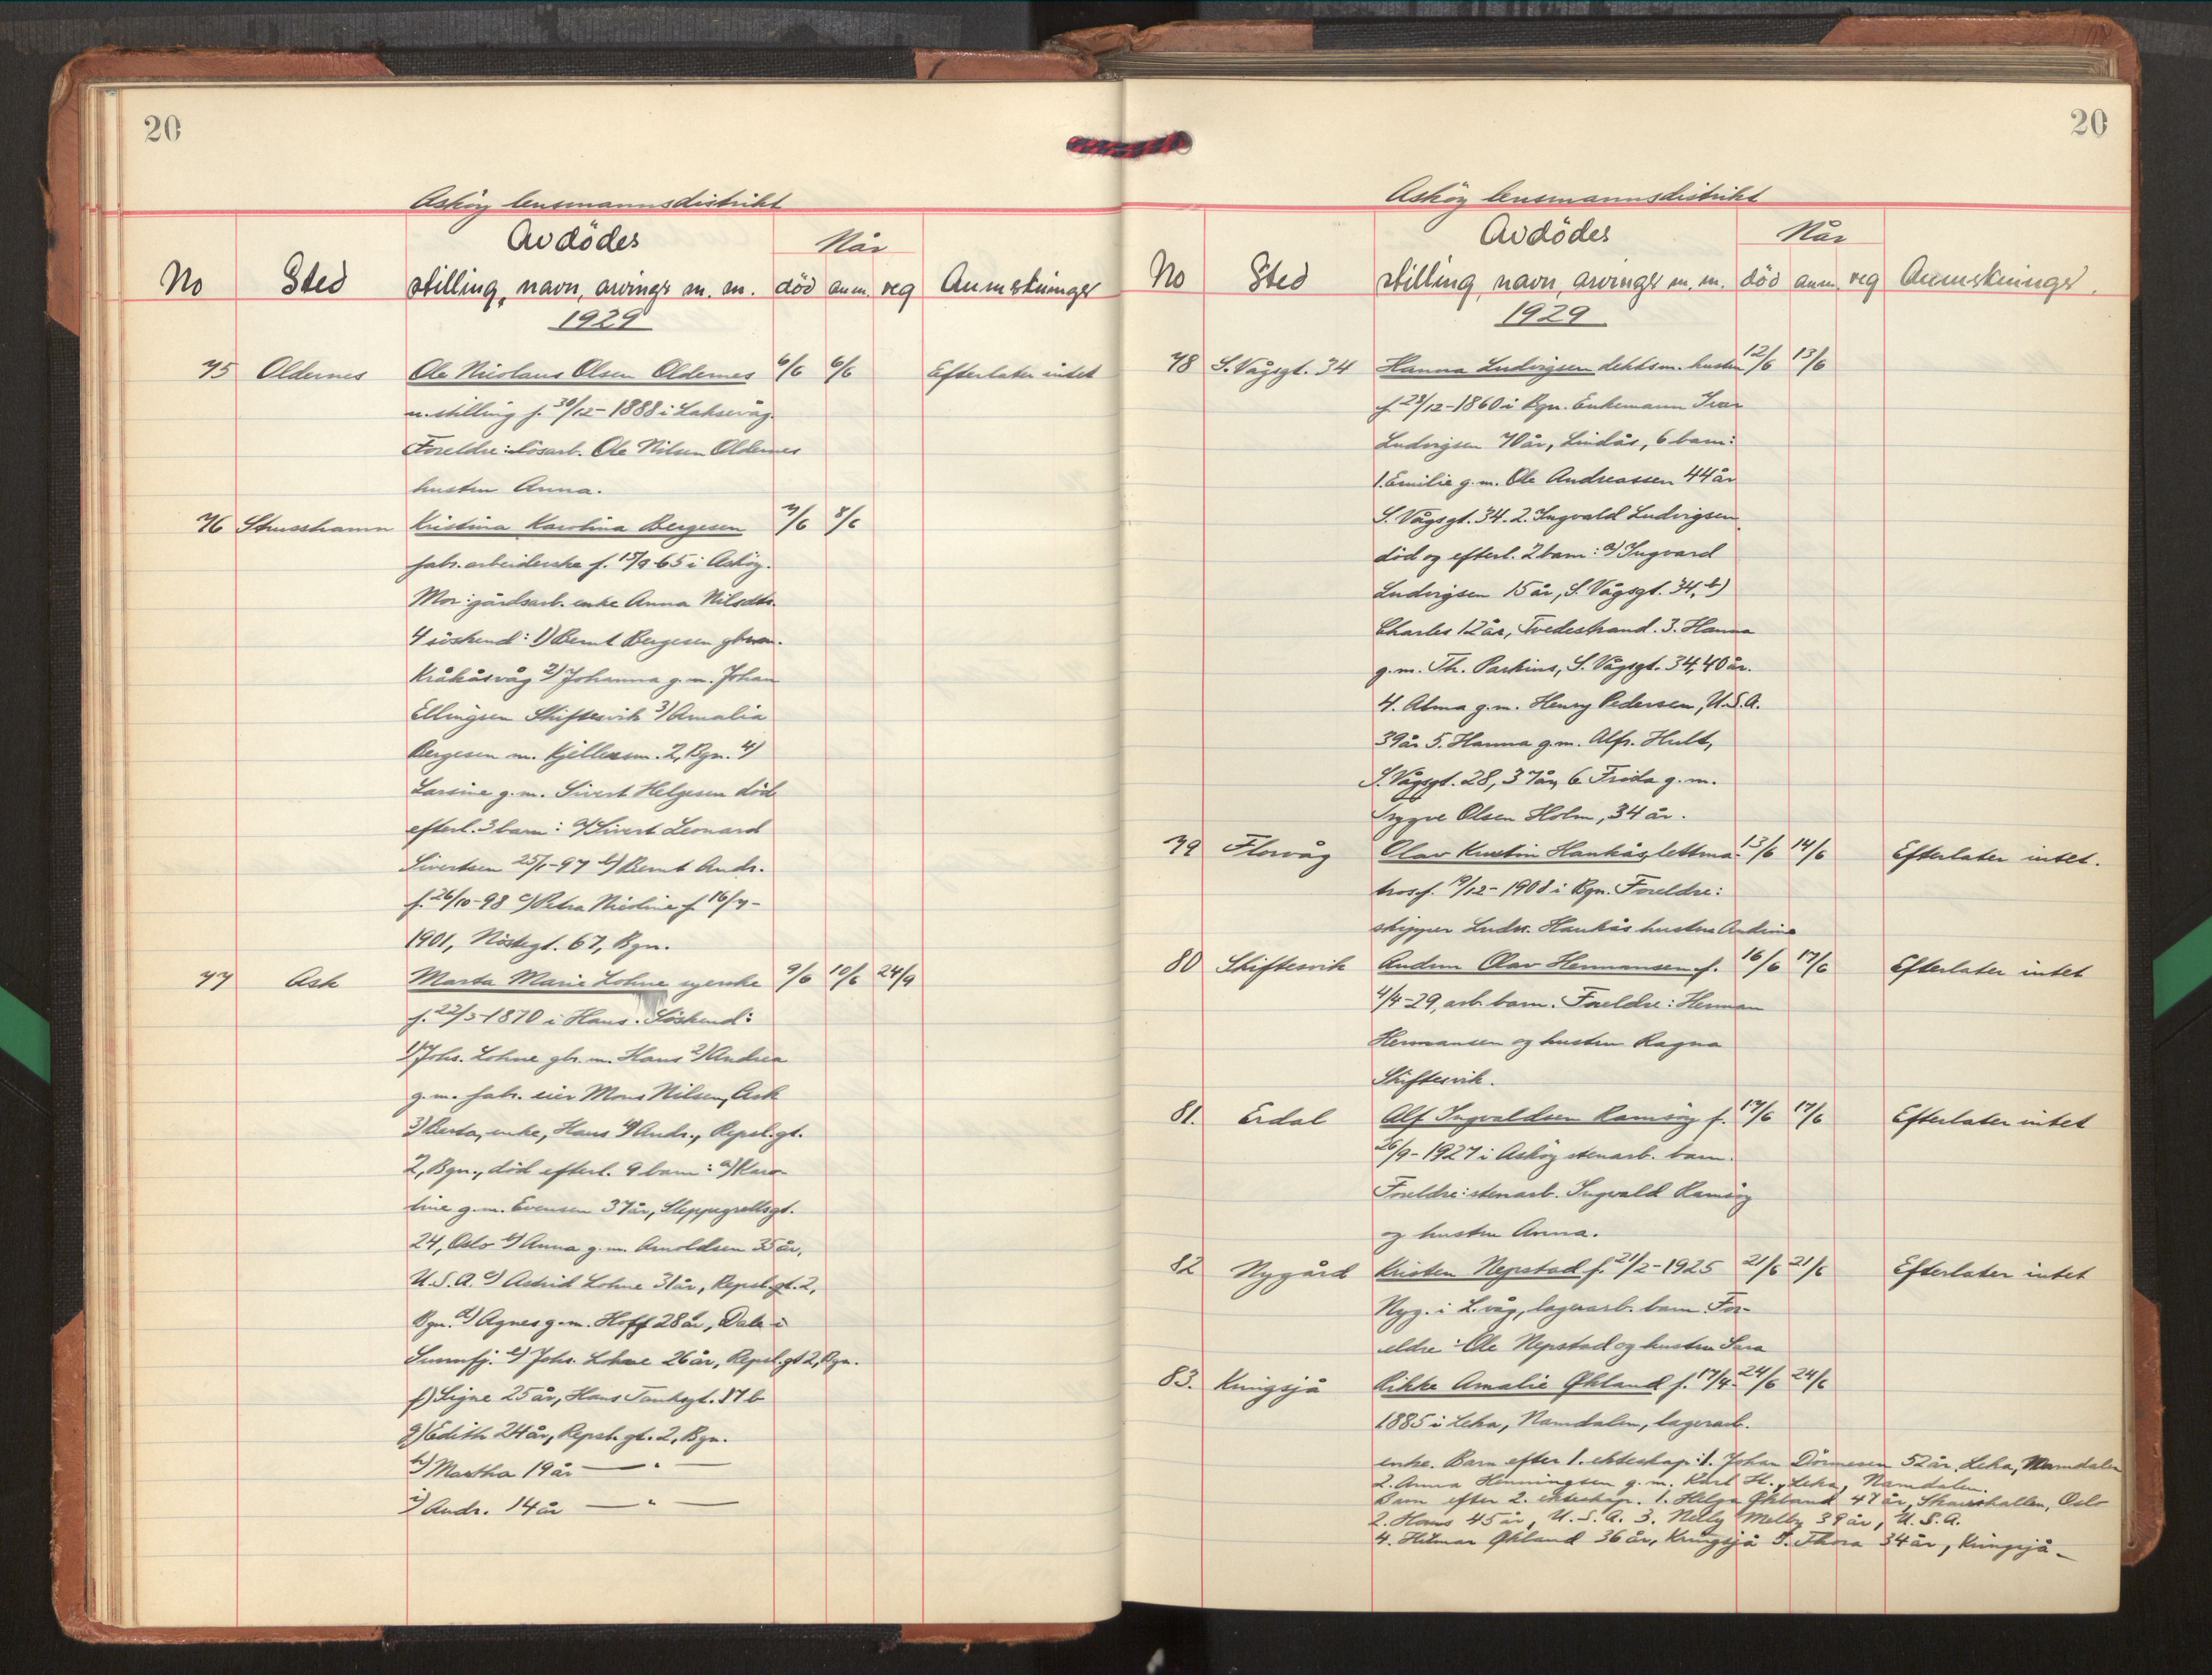 20
Askøy lensmannsdistrikt
Avdödes
Når
No Sted stilling, navn, arvinger m. m. död anm. reg Anmerkninger
1929
75 Oldernes Ole Nicolaus Olsen Oldernes 6/6 6/6 Efterlater intet
u. stilling f. 30/12-1888 i Laksevåg.
Foreldre: lösarb. Ole Nilsen Oldernes
hustru Anna.
76 Strusshamn Kristina Karolina Bergesen 7/6 8/6
fabr. arbeiderske f. 15/9-65 i Askøy.
Mor: gårdsarb. enke Anna Nilsdtr.
4 söskend: 1) Bernt Bergesen gbrm.
Kråkåsvåg 2) Johanna g.m. Johan
Ellingsen Skiftesvik 3) Amalia
Bergesen m. Kjellersm. 2, Bgn. 4)
Larsine g.m. Sivert Helgesen död
efterl. 3 barn: a) Sivert Leonard
Sivertsen 25/1-97 b) Bernt Andr.
f. 26/10-98 c) Petra Nicoline f. 16/7-
1901, Nöstegt. 67, Bgn.
77 Ask Marta Marie Lohne syerske 9/6 10/6 24/9
f. 22/5-1870 i Haus. Söskend:
1) Johs. Lohne gbr. m. Haus 2) Andrea
g.m. fabr. eier Mons Nilsen, Ask
3) Berta, enke, Haus 4) Andr., Repsl.gt.
2, Bgn., död efterl. 9 barn: a) Karo-
line g.m. Evensen 37 år, Steppegrellsgt.
24, Oslo b) Anna g.m. Arnoldsen 35 år,
U.S.A. c) Astrid Lohne 31 år, Repsl.gt. 2,
Bgn. d) Agnes g.m. Hoff 28 år, Dale i
Sunnfj. e) Johs. Lohne 26 år, Repsl.gt 2, Bgn.
f) Signe 25 år, Hans Tanksgt. 17 b
g) Edith 24 år, Repsl. gt. 2, Bgn.
h) Martha 19 år — " —
i) Andr. 14 år — " —
20
Askøy lensmannsdistrikt
Avdödes
Når
No Sted stilling, navn, arvinger m. m. död anm. reg Anmerkninger.
1929
78 S. Vågsgt. 34 Hanna Ludvigsen dekksm. hustru 12/6 13/6
f. 28/12-1860 i Bgn. Enkemann Ivar
Ludvigsen 70 år, Lindås, 6 barn:
1. Emilie g.m. Ole Andreassen 44 år
S. Vågsgt. 34. 2. Ingvald Ludvigsen
död og efterl. 2 barn: a) Ingvard
Ludvigsen 15 år, S. Vågsgt. 34, b)
Charles 12 år, Tvedestrand. 3. Hanna
g.m. Th. Parkins, S. Vågsgt. 34, 40 år.
4. Alma g.m. Henry Pedersen, U.S.A.
39 år 5. Hanna g.m. Alfr. Hult,
S. Vågsgt. 28, 37 år, 6 Frida g.m.
Trygve Olsen Holm, 34 år.
79 Florvåg Olav Kristin Haukås, lettma- 13/6 14/6 Efterlater intet.
tros f. 19/12-1908 i Bgn. Foreldre:
skipper Ludv. Haukås hustru Andrine
80 Skiftesvik Andrun Olav Hermansen f. 16/6 17/6 Efterlater intet
4/4-29, arb. barn. Foreldre: Herman
Hermansen og hustru Ragna
Skiftesvik.
81. Erdal Alf Ingvaldsen Ramsöy f. 17/6 17/6 Efterlater intet
26/9-1927 i Askøy stenarb. barn.
Foreldre: stenarb. Ingvald Ramsöy
og hustru Anna.
82 Nygård Kristen Nepstad f. 21/2-1925 21/6 21/6 Efterlater intet
Nyg. i L.våg, lagerarb. barn. For-
eldre: Ole Nepstad og hustru Sara
83. Kringsjå Rikke Amalie Økland f. 17/4- 24/6 24/6
1885 i Leka, Namdalen, lagerarb.
enke. Barn efter 1. ekteskap: 1. Johan Dörnesen 52 år, Leka, Namdalen
2. Anna Henningsen g.m. Karl H., Leka, Namdalen.
Barn efter 2. ekteskap. 1. Helga Økland 47 år, Oslo
2. Hans 45 år, U.S.A. 3. Nelly Melby 39 år, U.S.A.
4. Hilmar Økland 36 år, Kringsjå 5. Thora 34 år, Kringsjå –